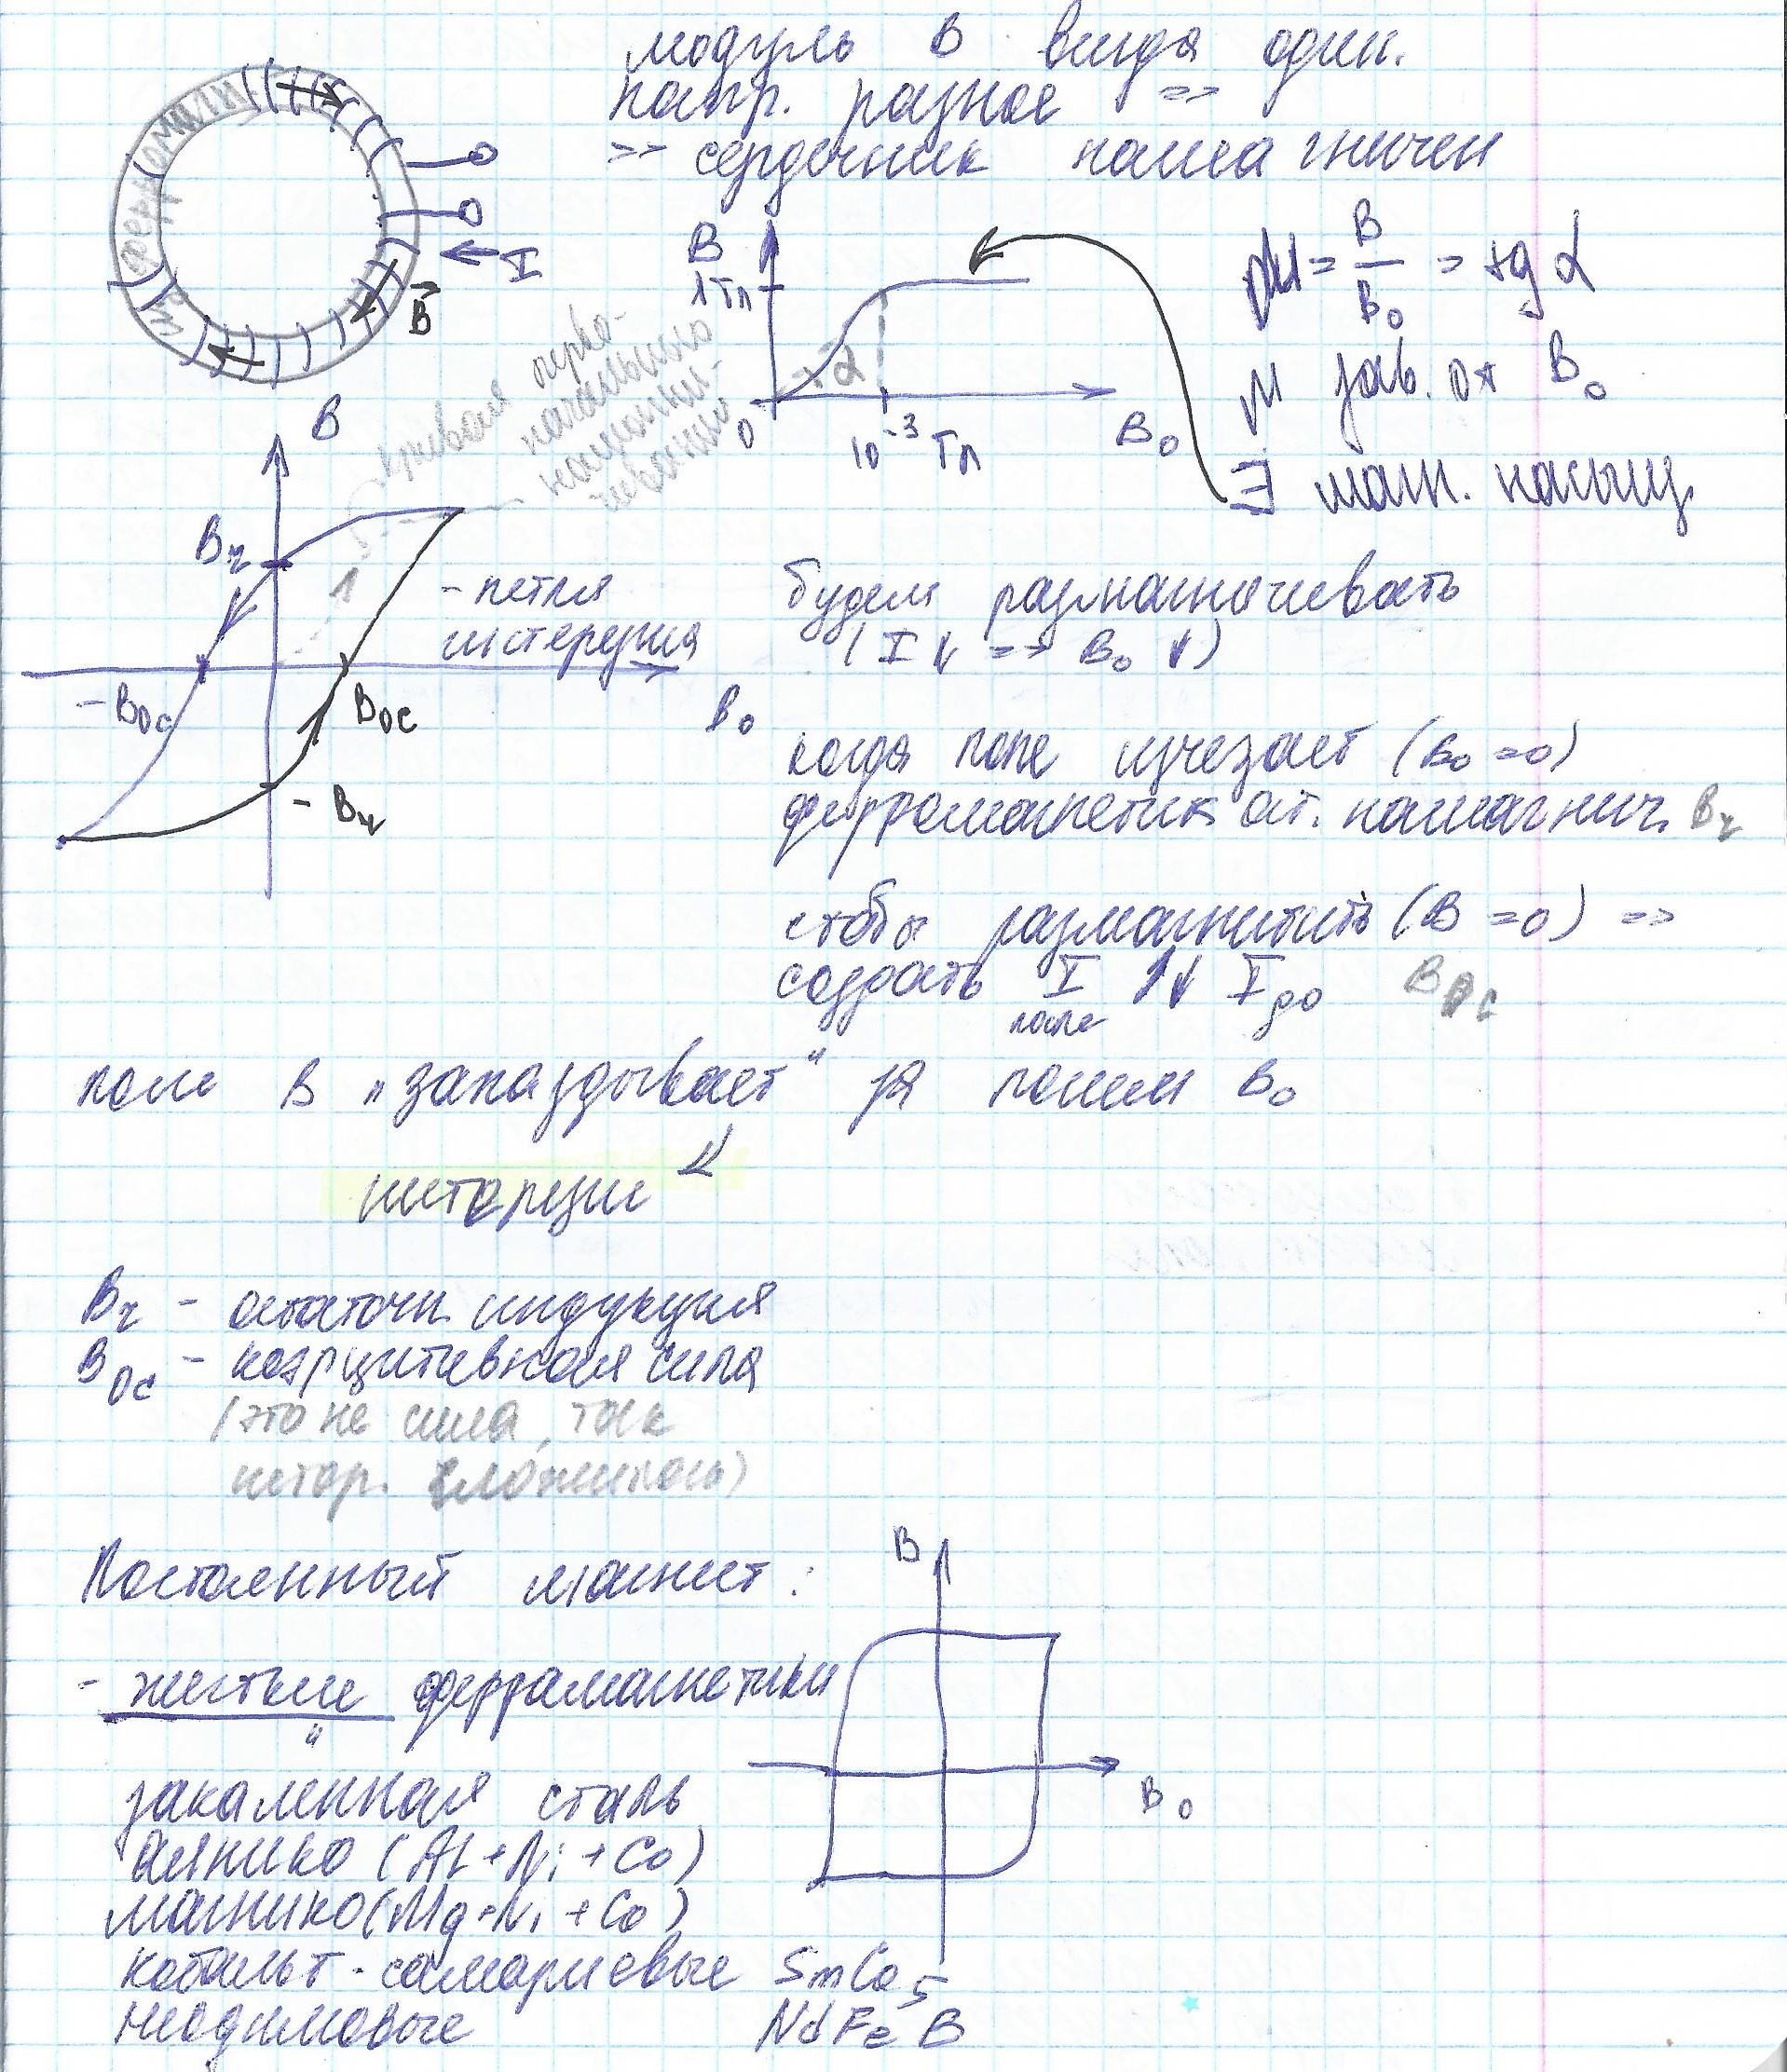 модуль B всюда один.
напр. разное =>
=> сердечник намагничен
из ферромагн
I
B
B
1 Тл
α
0
10⁻³ Тл
B₀
μ = B/B₀ = tg α
μ зав. от B₀
∃ магн. насыщ.
кривая перво-
начального
намагни-
чевания
B
Bг
1
- петля
гистерезиса
-B₀c
B₀c
B₀
-Bг
будем размагничевать
(I↓ => B₀↓)
когда поле изчезает (B₀=0)
ферромагнетик ост. намагнич. Bг
чтобы размагнитить (B=0) =>
создать I ↑↓ I до B₀c
после
поле B „запаздывает" за полем B₀
гистерезис
Bг - остаточн. индукция
B₀c - коэрцитивная сила
(это не сила, так
истор. сложилось)
Постоянный магнит:
B
- жесткие ферромагнетики
B₀
закаленная сталь
алнико (Al+Ni+Co)
магнико (Mg+Ni+Co)
кобальт-самариевые SmCo₅
неодимовые NdFeB